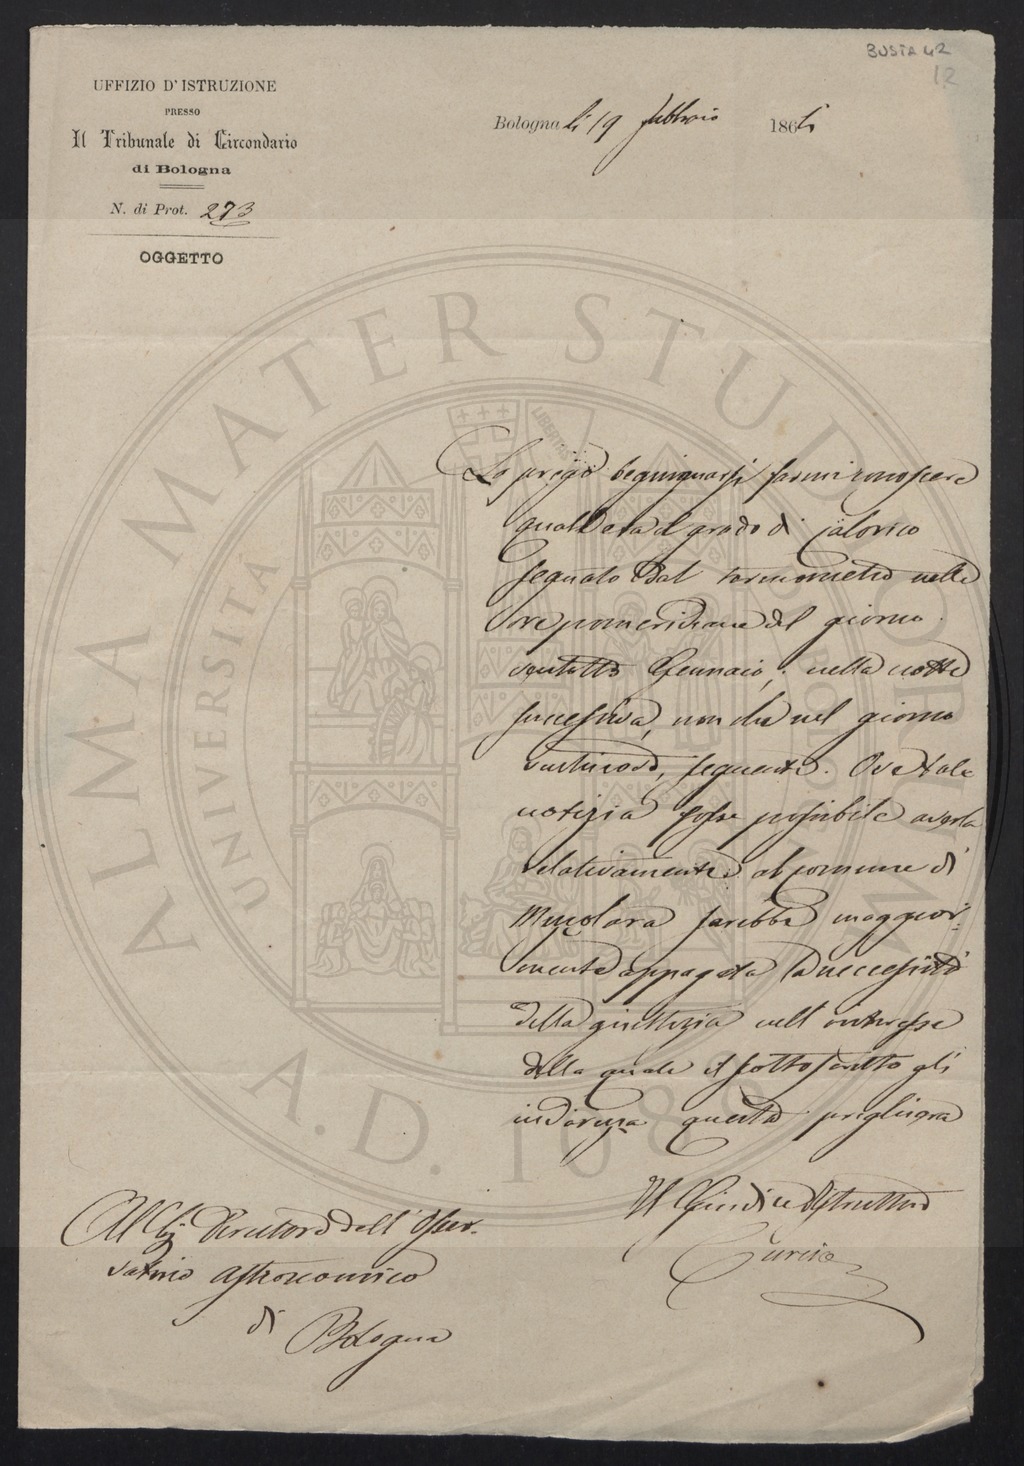 BUSTA 42
12
UFFIZIO D'ISTRUZIONE
PRESSO
Il Tribunale di Circondario
di Bologna
N. di Prot. 273
OGGETTO
Bologna li 19 febbraio 1864
La prego degnignarsi farmi conoscere
quale era il grado di calorico
segnato dal termometro nelle
ore pomeridiane del giorno
ventotto Gennaio, nella notte
successiva, non che nel giorno
ventinove, seguente. Ove tale
notizia fosse possibile averla
relativamente al comune di
Mezolara sarebbe maggior=
mente appagata la necessità
della giustizia nell'interesse
della quale il sottoscritto gli
indirizza questa preghiera
Il Giudice Istruttore
Al Direttore dell'Osser-
vatorio astronomico
di Bologna
ALMA MATER STUDIORUM
UNIVERSITÀ DI BOLOGNA
A.D. 1088
LIBERTAS